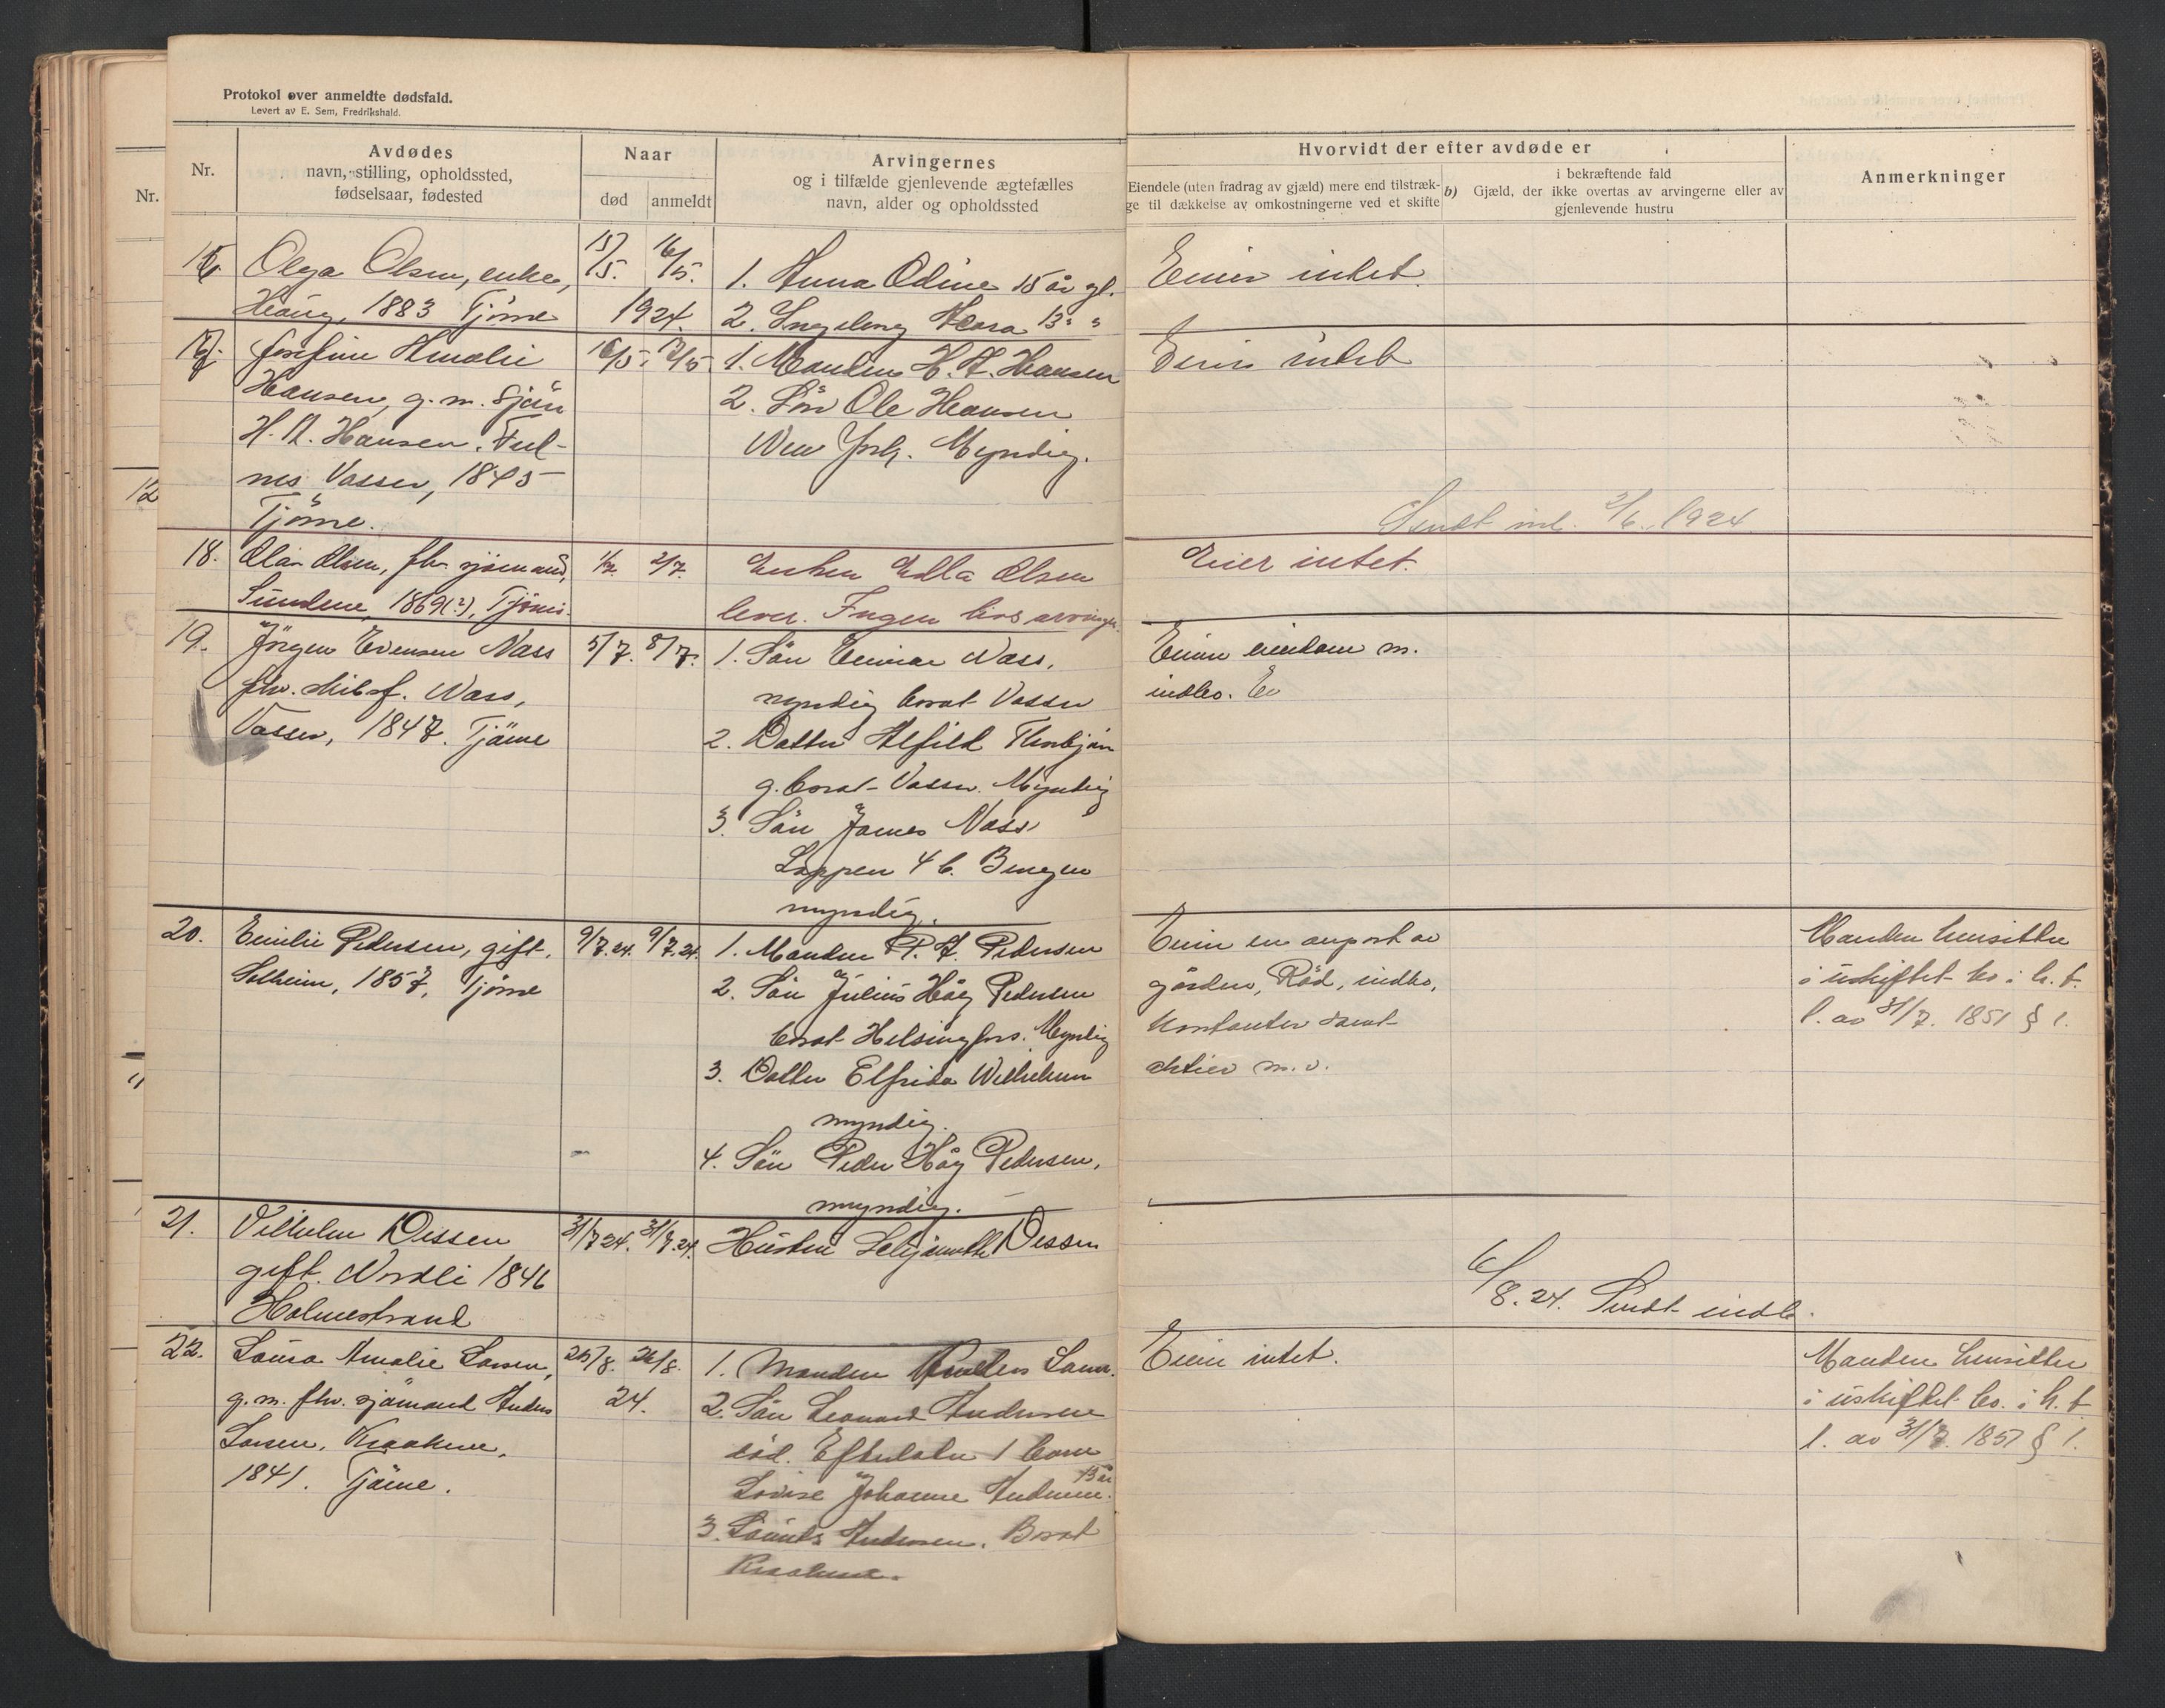 Protokol over anmeldte dødsfald.
Levert av E. Sem, Fredrikshald.
Nr.
Avdødes
navn, stilling, opholdssted,
fødselsaar, fødested
Naar
død
anmeldt
Arvingernes
og i tilfælde gjenlevende ægtefælles
navn, alder og opholdssted
Hvorvidt der efter avdøde er
Eiendele (uten fradrag av gjæld) mere end tilstræk-
ge til dækkelse av omkostningerne ved et skifte
b) Gjæld, der
i bekræftende fald
ikke overtas av arvingerne eller av
gjenlevende hustru
Anmerkninger
Nr.
12
Olga Olsen, enke,
Haug, 1883 Tjøme
15/5. 16/5.
1924.
1. Anna Odine 15 år gl.
2. Ingeborg 13 " "
Eier intet.
Josefine Amalie
Hansen, g.m. sjøm
H. A. Hansen,
nes Vasser, 1845
Tjøme.
16/5. 17/5.
1. Manden H. A. Hansen
2. Søn Ole Hansen
New York. Myndig.
Eier intet
Sendt inb. 2/6. 1924
18.
Olav Olsen, fhv. sjømand,
Sundene, 1869(?), Tjøme.
1/7. 2/7.
Enken Edla Olsen
lever. Ingen livsarvinger.
Eier intet.
19.
Jørgen Evensen Nass
fhv. skibsf. Nass,
Vasser, 1847. Tjøme
5/7. 8/7.
1. Søn Einar Nass,
myndig bosat Vasser
2. Datter Alfild Thorbjørn
g. bosat Vasser. Myndig
3. Søn James Nass
4 b. Bergen
myndig.
Eier eiendom m.
indbo.
20.
Emilie Pedersen, gift,
Solheim, 1857, Tjøme
9/7.24. 9/7.24
1. Manden P. A. Pedersen
2. Søn Julius Høeg Pedersen
bosat Helsingfors. Myndig
3. Datter Elfrida Wilhelmsen
myndig.
4. Søn Peder Høeg Pedersen,
myndig.
Eier en anpart av
gården, Rød, indbo,
kontanter samt
aktier m.v.
Manden hensitter
i uskiftet bo i h. t.
l. av 31/7. 1851 § 1.
21.
Vilhelm Dissen
gift. Nordli 1846
Holmestrand
31/7 24. 31/7.24.
Hustru Dessen
6/8.24. Sendt indb.
22.
Laura Amalie Larsen,
g.m. fhv. sjømand Anders
Larsen, Kraakere,
1841. Tjøme.
25/8. 26/8.
24.
1. Manden Anders Larsen.
2. Søn Leonard Andersen
død. Efterlater 1 barn
Lovise Johanne Andersen. 13 år
3. Laurits Andersen. Bosat
Kraakere.
Eier intet.
Manden hensitter
i uskiftet bo. i h. t.
l. av 31/7. 1851 § 1.